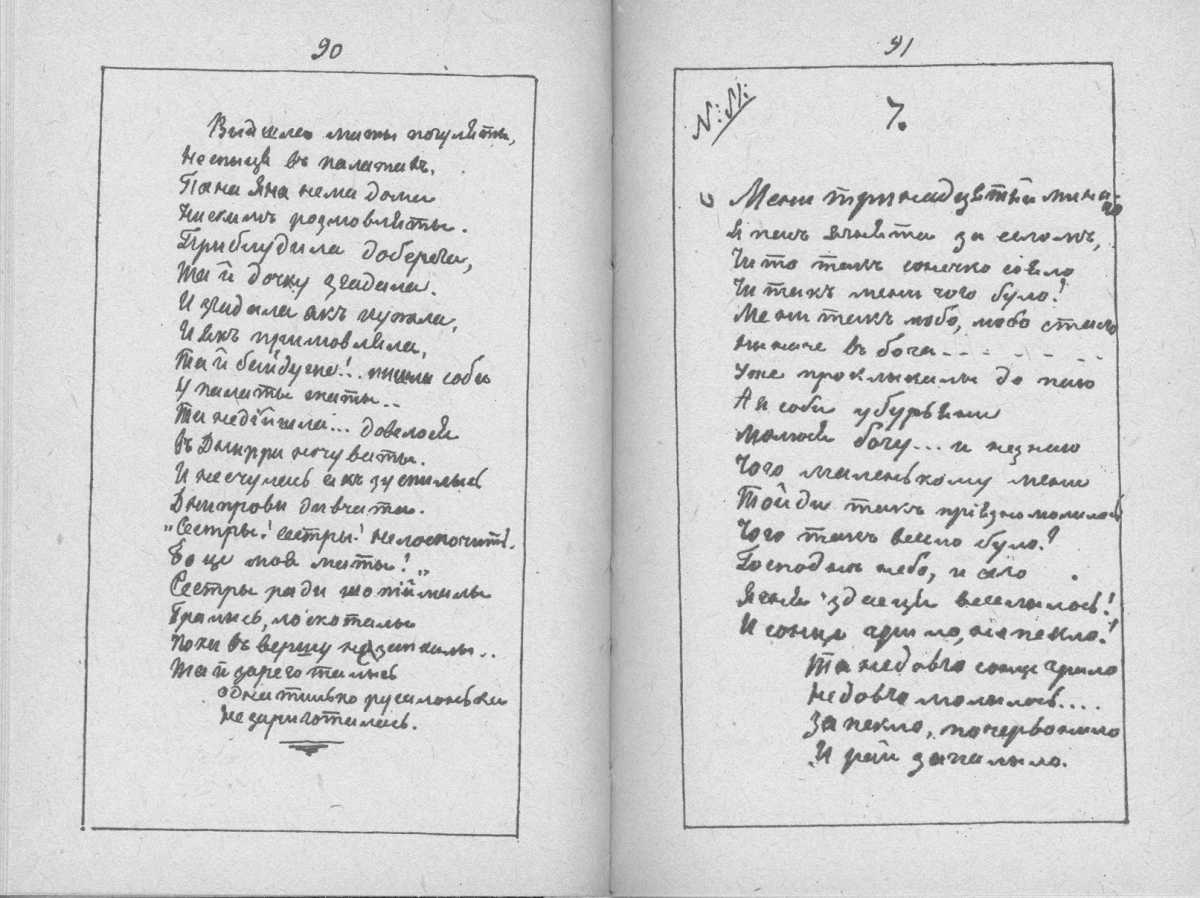 90
Выйшла маты погуляты,
Неспыця въ палатахъ.
Пана Яна нема дома
Ни скимъ розмовляты.
Приблудила доберега,
Та й дочку згадала.
И згадала якъ купала,
И якъ примовляла,
Та й байдуже!.. пишла соби
У палаты спаты...
Та недiйшла... довелося
Въ Днипри ночуваты.
И несчулась якъ зуспилысь
Днипровы дивчата.
„Сестры! сестры!
Бо це моя маты!„
Сестры ради
Гралысь, лоскоталы
Поки въ вершу не запхалы..
Та й зареготалысь
Одна тилько русалонька
Незариготалась.
91
7.
Мени тринадцятый мина-
ло
Я пасъ ягнята за селомъ,
Чи то такъ сонечко сіяло
Чи такъ мени чого було?
Мени такъ любо, любо стало
Ниначе въ бога - - - - - -
Уже проклыкалы до паю
А я соби убурьяни
Молюся богу... и незнаю
Чого маленькому мени
Тойди такъ прiязно молилось
Чого такъ весело було?
Господнъ небо, и село
Ягня здаеця веселилось!
И сонце грило, непекло!
Та недовго сонце грило
Недовго молилось....
Запекло, почервонило
И рай запалыло.